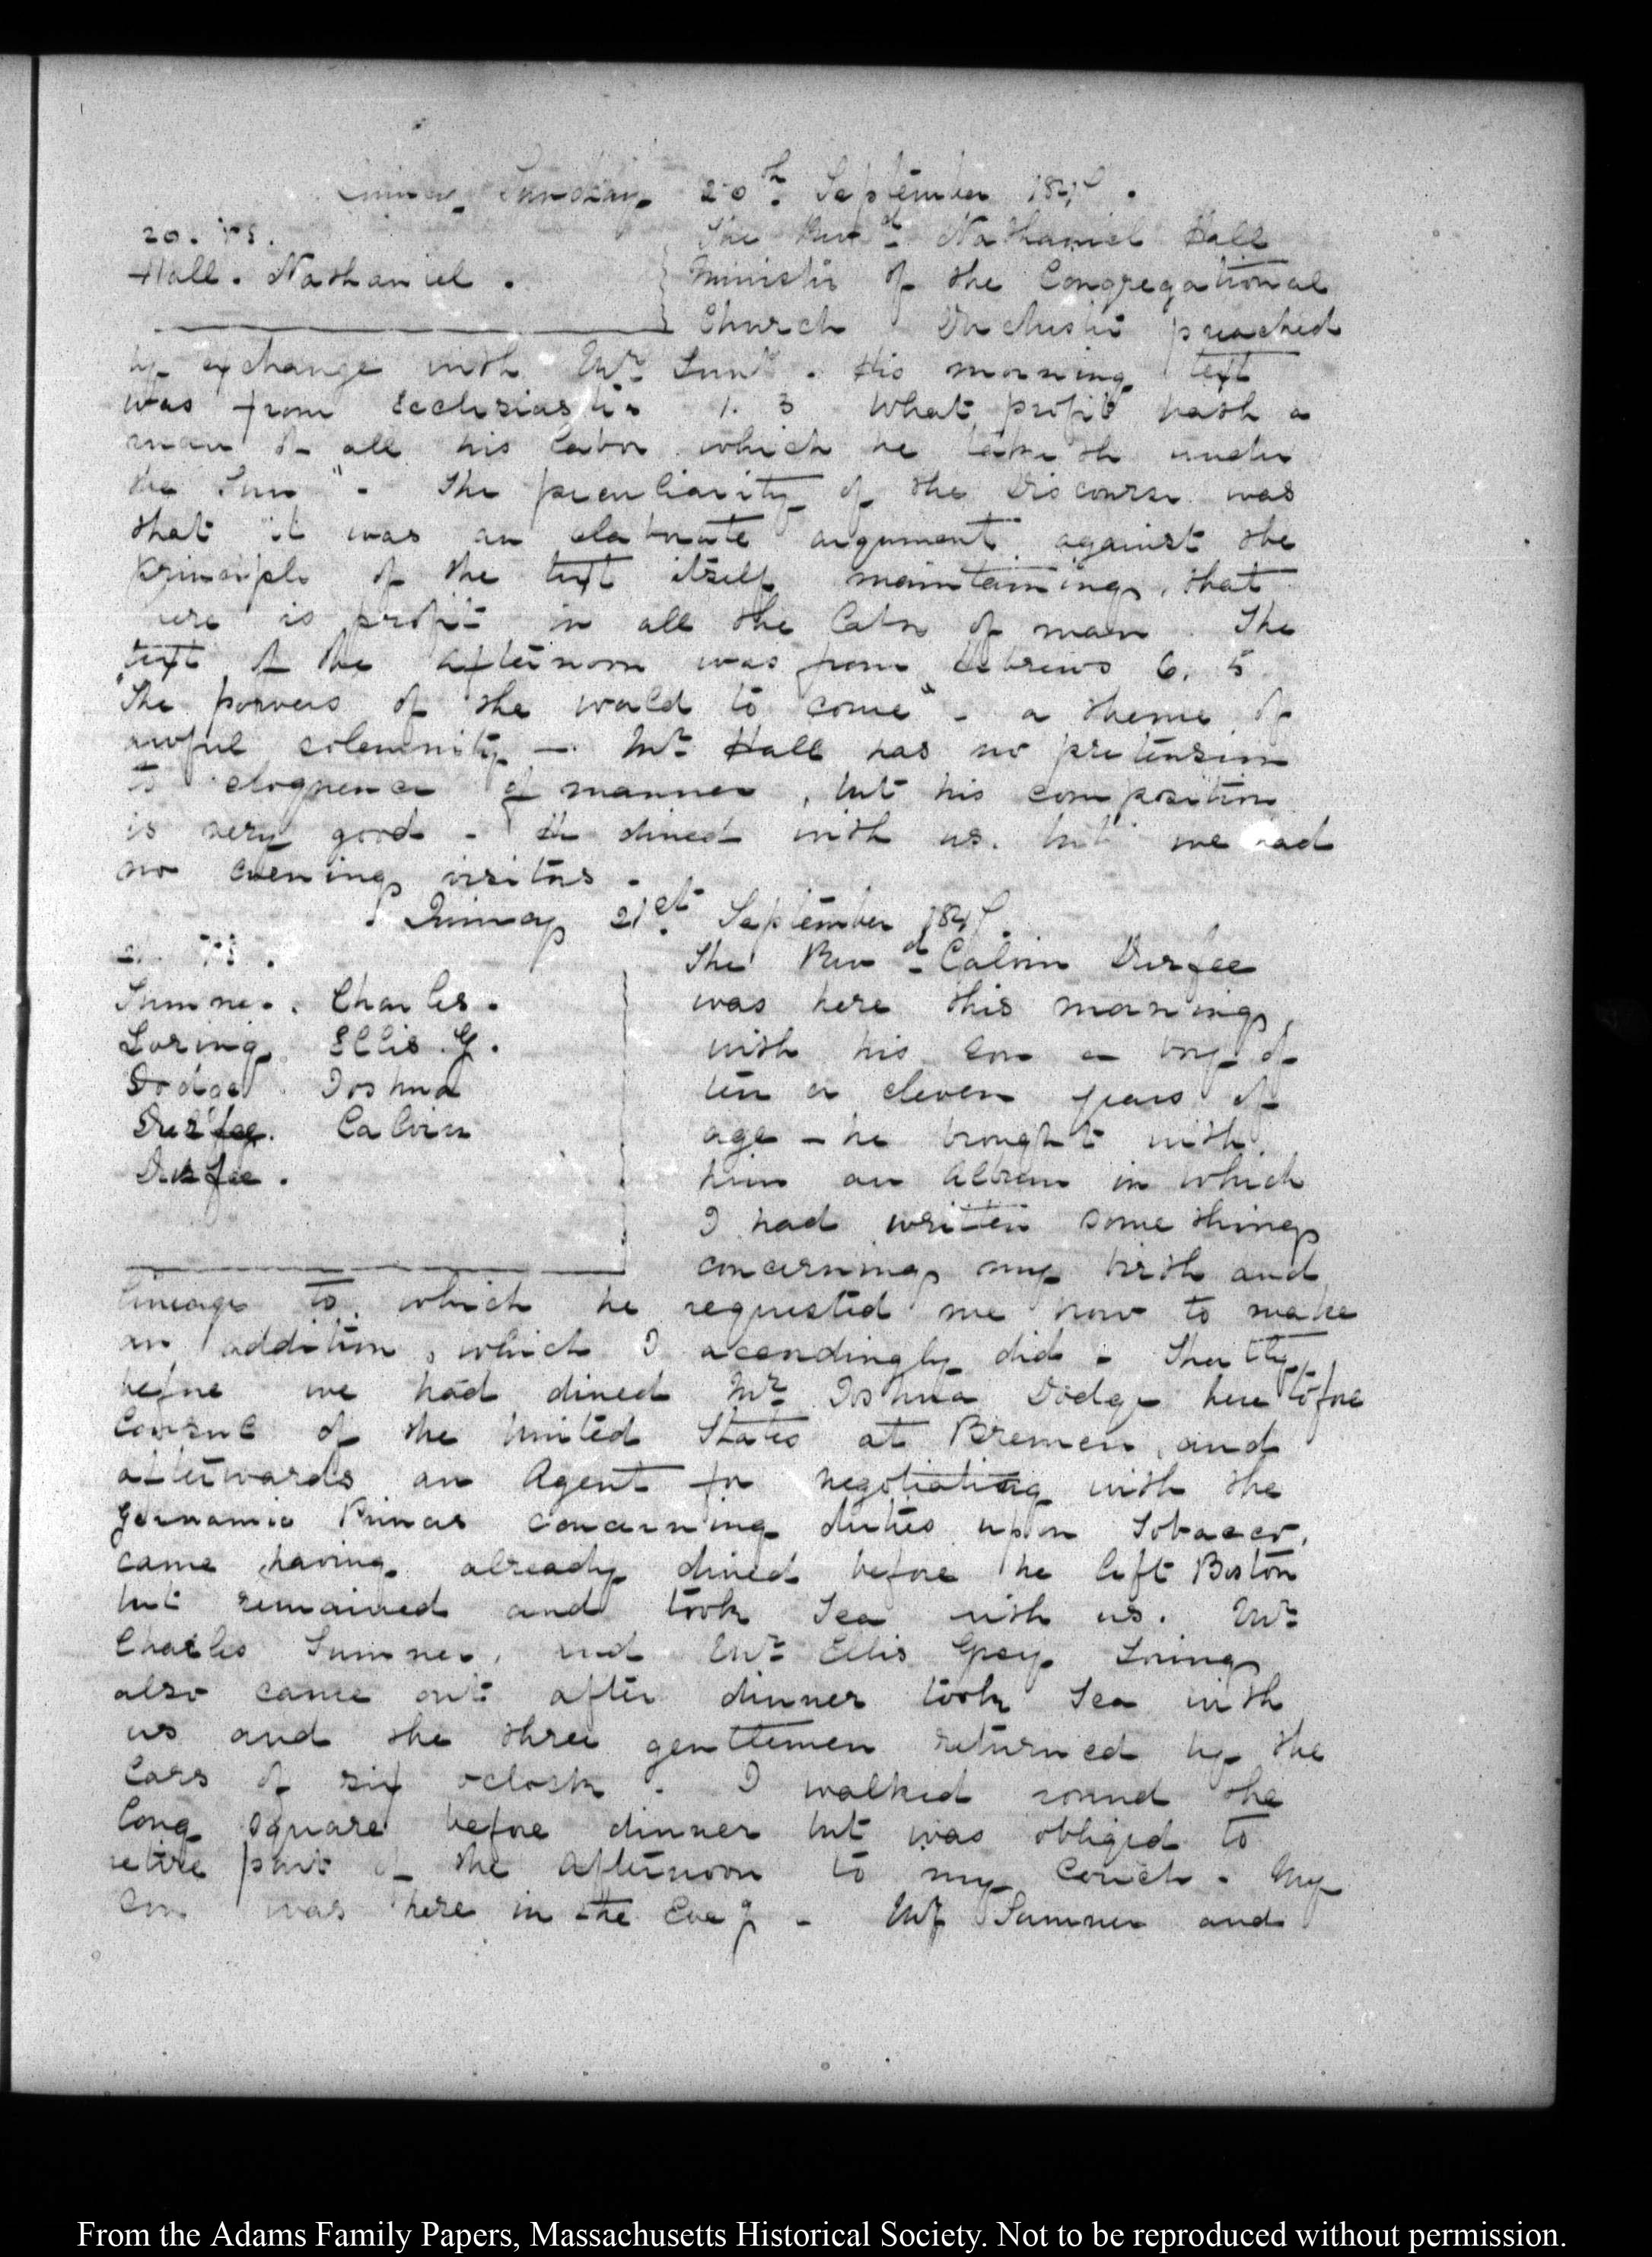 Quincy Sunday 20th September 184
20.
The Revd Nathaniel Hall
Hall. Nathaniel.
Minister of the Congregational
Church Dorchester preached
by exchange with Mr Lunt. His morning text
was from Ecclesiastes 1. 3 What profit hath a
man of all his labor which he taketh under
the Sun". The peculiarity of the Discourse was
that it was an elaborate argument against the
principle of the text itself maintaining, that
is profit in all the labor of man. The
text of the afternoon was from Hebrews 6. 5
"The powers of the world to come" - a theme of
awful solemnity — Mr Hall has no pretension
to eloquence of manner, but his composition
is very good - He dined with us. but we had
no evening visitors -
Quincy 21st September 184
The Revd Calvin Durfee
Sumner. Charles.
was here this morning,
Loring Ellis. G.
with his son a boy of
Dodge Joshua
ten or eleven years of
Durfee. Calvin
age - he brought with
Durfee.
him an Album in which
I had written some things
concerning my birth and
lineage to which he requested me now to make
an addition, which I accordingly did - Shortly
before we had dined Mr Joshua Dodge heretofore
Consul of the United States at Bremen, and
afterwards an Agent for negotiating with the
Germanic Princes concerning duties upon Tobacco,
came having already dined before he left Boston
but remained and took Tea with us. Mr
Charles Sumner, and Mr Ellis Gray Loring
also came out after dinner took Tea with
us and the three gentlemen returned by the
Cars of six oclock - I walked round the
long square before dinner but was obliged to
retire part of the afternoon to my Couch - My
Son was here in the Eveg - Mr Sumner and
From the Adams Family Papers, Massachusetts Historical Society. Not to be reproduced without permission.